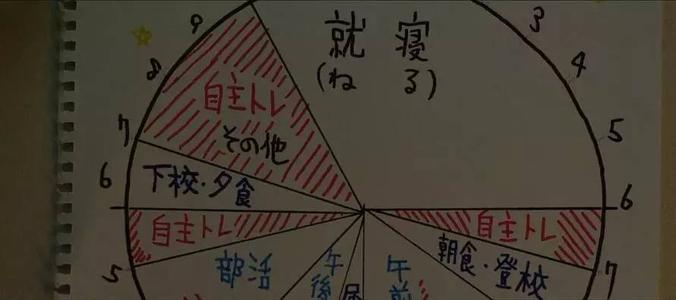 9
8
7
6
5
3
4
5
6
7
就寝
(ねる)
自主トレ
その他
下校・夕食
自主トレ
部活
午後
昼
午前
朝食・登校
自主トレ